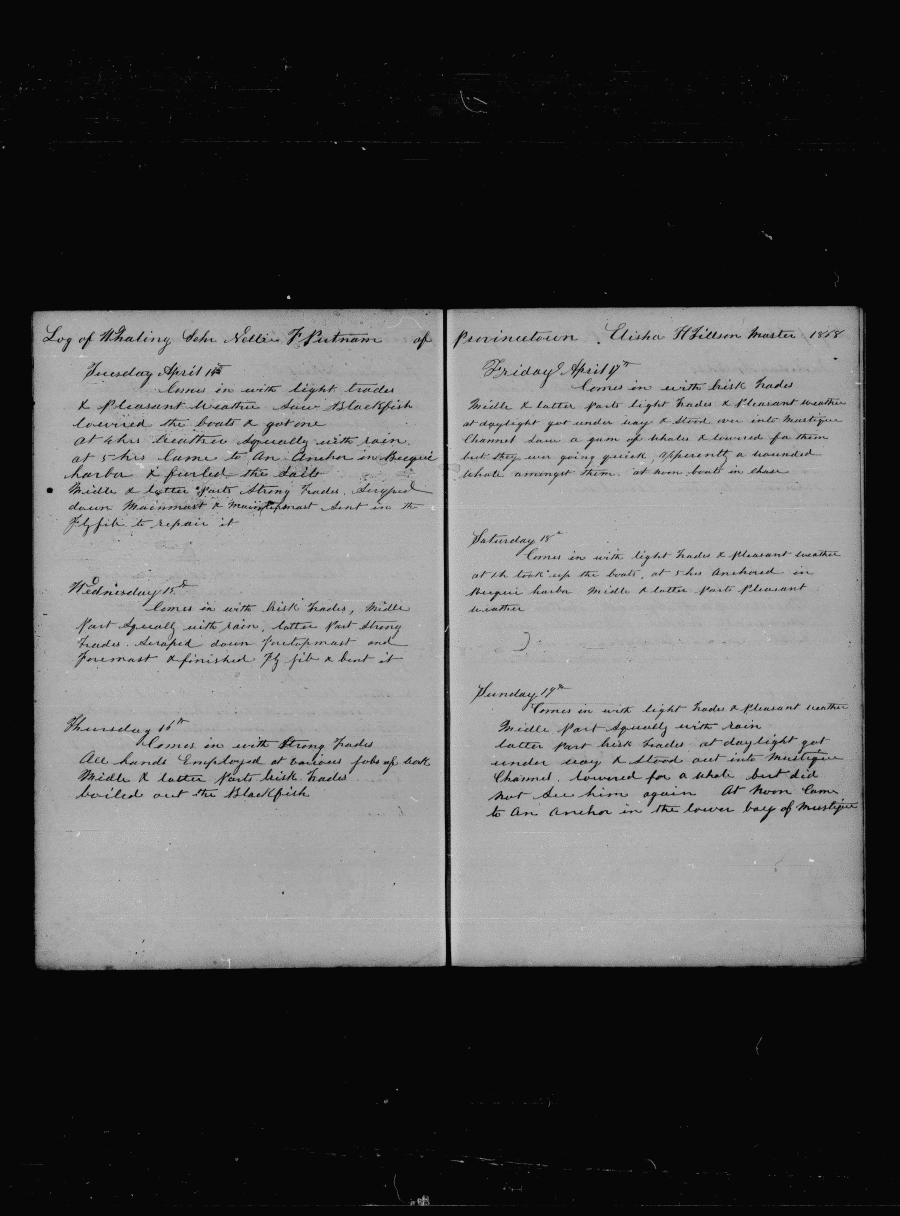 Log of Whaling Schr Nellie F Putnam of
Tuesday April 14th
Comes in with light trades
& Pleasant Weather Saw Blackfish
lowered the boats & got one
at 4 hrs Weather Squally with rain
at 5 hrs Came to An Anchor in Becquie
harbor & furled the Sails
Midle & latter Parts Strong trades. Scraped
down Mainmast & Maintopmast Sent in the
Flyjib to repair it
Wednesday 15th
Comes in with brisk trades, Midle
Part Squally with rain, latter Part Strong
trades. Scraped down foretopmast and
Foremast & finished Fly jib & bent it
Thursday 16th
Comes in with Strong trades
All hands Employed at various jobs of work
Midle & latter Parts brisk trades
boiled out the Blackfish
Provincetown Elisha H Tillson Master 1868
Friday April 17th
Comes in with brisk trades
Midle & latter Parts light trades & Pleasant weather
at daylight got under way & stood over into Mustique
Channel Saw a gam of whales & lowered for them
but they wer going quick, Apperently a wounded
whale amongst them. at noon boats in chase
Saturday 18th
Comes in with light trades & Pleasant weather
at 1 h took up the boats, at 5 hrs Anchored in
Becquie harbor Midle & latter Parts Pleasant
weather
Sunday 19th
Comes in with light trades & Pleasant weather
Midle Part Squally with rain
latter Part brisk trades. at daylight got
under way & stood out into Mustique
Channel. lowered for a whale but did
not See him again At Noon Came
to An Anchor in the lower bay of Mustique